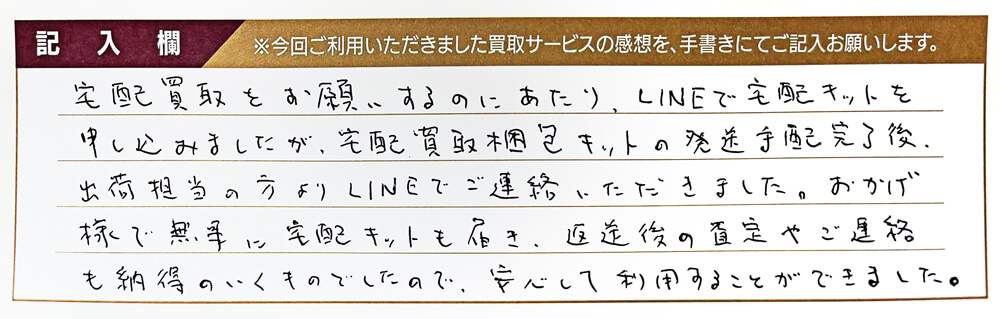 記入欄
※今回ご利用いただきました買取サービスの感想を、手書きにてご記入お願いします。
宅配買取をお願いするのにあたり、LINEで宅配キットを
申し込みましたが、宅配買取梱包キットの発送手配完了後、
出荷担当の方よりLINEでご連絡いただきました。おかげ
様で無事に宅配キットも届き、返送後の査定やご連絡
も納得のいくものでしたので、安心して利用することができました。